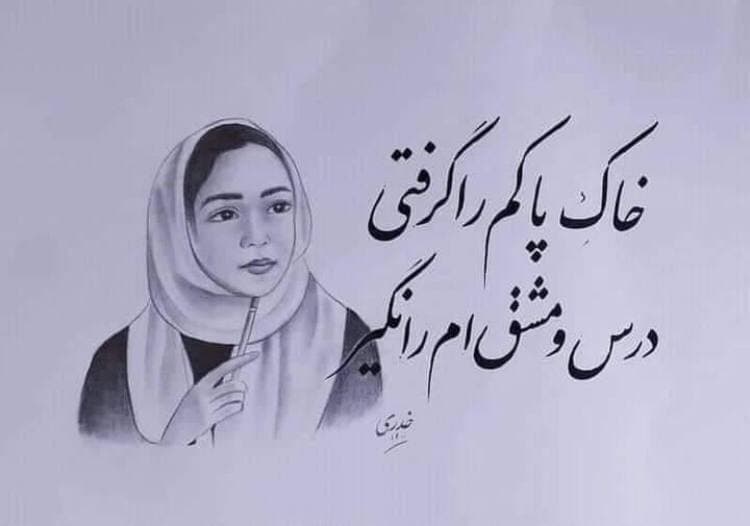 خاکِ پاکم را گرفتی
درس و مشق ام را نگیر